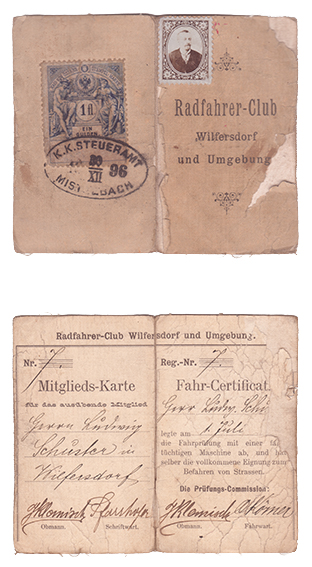 1 fl
EIN
GULDEN
K.K. STEUERAMT
30
XII
96
MISTELBACH
Radfahrer-Club
Wilfersdorf
und Umgebung
Radfahrer-Club Wilfersdorf und Umgebung.
Nr. 7.
Mitglieds-Karte
für das ausübende Mitglied
Herrn Ludwig
Schuster in
Wilfersdorf
Obmann. Schriftwart.
Reg.-Nr. 7.
Fahr-Certificat.
Herr Ludw. Schu
legte am 1. Juli
die Fahrprüfung mit einer fa
tüchtigen Maschine ab, und hat
selber die vollkommene Eignung zum
Befahren von Strassen.
Die Prüfungs-Commission:
Obmann. Fahrwart.